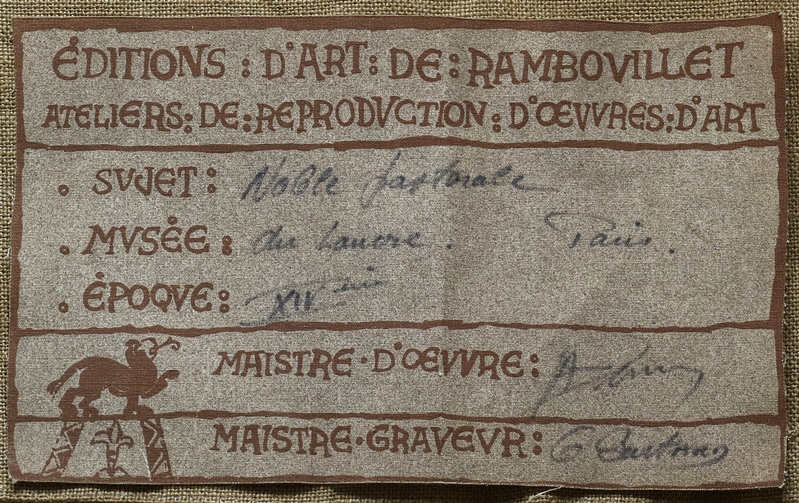 ÉDITIONS : D'ART : DE : RAMBOVILLET
ATELIERS : DE : REPRODVCTION : D'ŒVVRES : D'ART
. SVJET : Noble pastorale
. MVSÉE : du Louvre . Paris .
. ÉPOQVE : XIV
MAISTRE · D'ŒVVRE :
MAISTRE · GRAVEVR : G